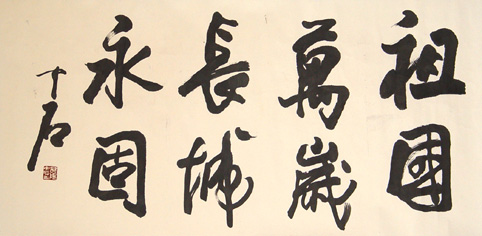 祖國
萬歲
長城
永固
中石